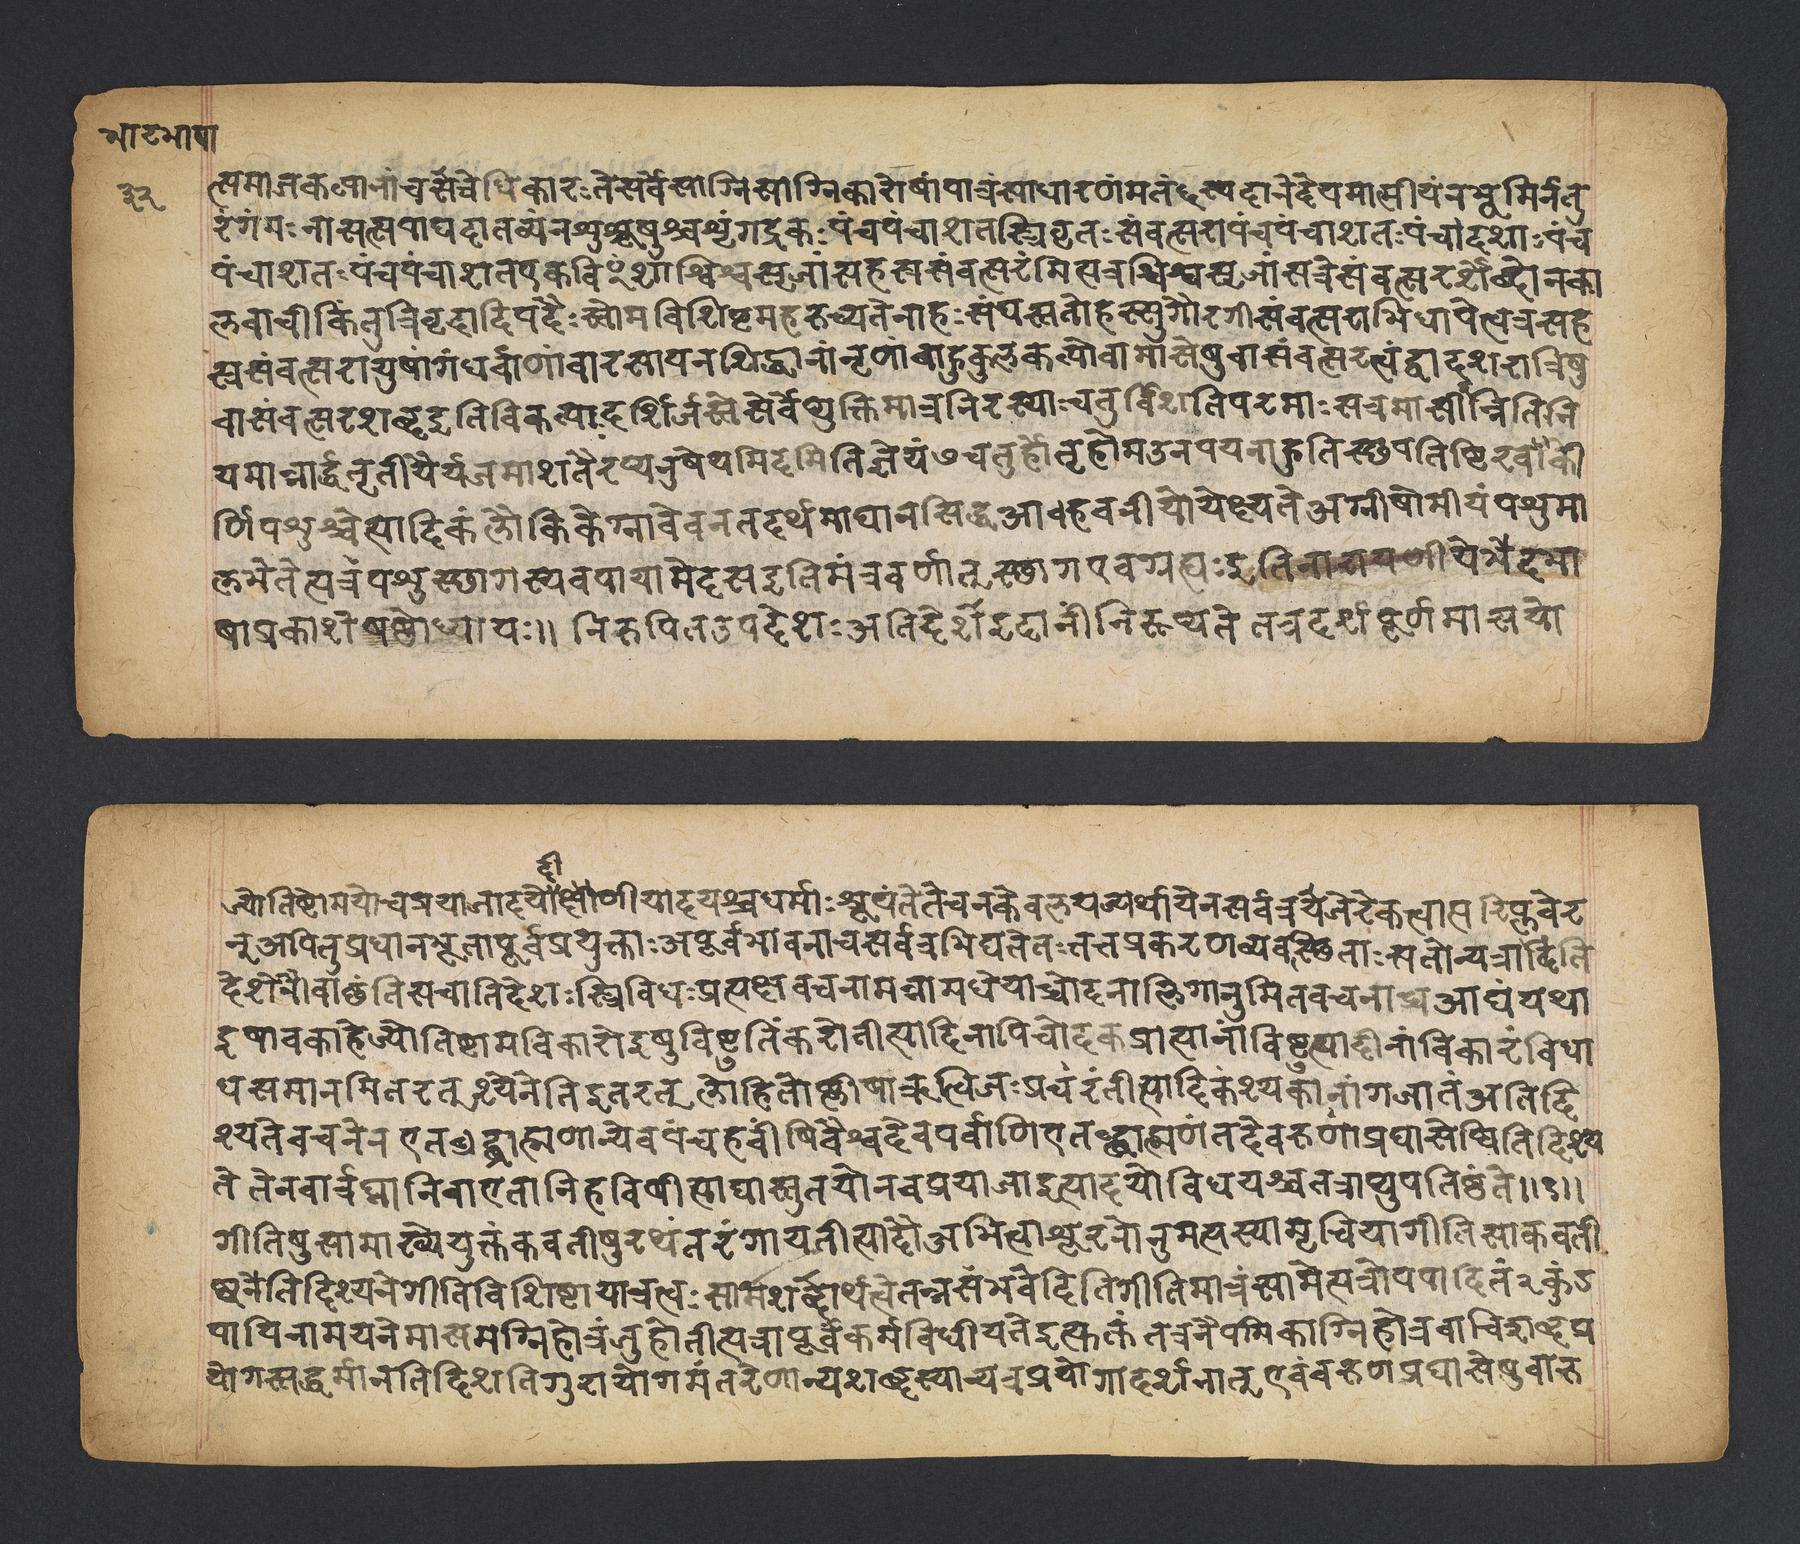 भाटभाषा
३२
त्समाजकल्पानां च सत्रेधिकारः ते सर्वे साग्नि साग्निकारोषां पात्रं साधारणं मतं दानेदेयमात्मीयं न भूमिर्नतु
रंगंमः नासत्सपाघदातव्यं न शुश्रूषुश्च शृंगद्रकः पंचपंचाशतस्त्रिवृतः संवत्सरा पंचपंचाशतः पंचादशाः पंच
पंचाशतः पंचपंचाशत एकविंशा विश्वसृजां सहस्रसंवत्सरंमित्यत्र विश्वसृजां सत्रे संवत्सरशब्दो न का
लवाची किंतु त्रिवृदादिपदैः स्तोमविशिष्टमहरुच्यते नाहः संघस्ततोहस्सु गौरगी संवत्सराभिधापेत्यत्र सह
स्रसंवत्सरायुषां गंधर्वाणां वा रसायनसिद्धानां नृणां वा कुलकल्पो वा मासेषु वा संवत्सरत्वं द्वादशरात्रिषु
वा संवत्सरशब्द इति विकल्पा दर्शि चतुर्विंशतिपरमाः सत्रमासीरन्निति नि
यमान्नार्द्धतृतीयैर्यजमाशतैरप्यनुषेयमिदमिति ज्ञेयं ७ चतुर्होतृहोम उनपयनाहुति स्थपतिष्टिरवकी
र्णिपशुश्चेत्यादिकं लौकिकेग्नावेव न तदर्थमाधानसिद्ध आहवनीयो अग्नीषोमीयं पशुमा
लभेतेत्यत्र पशुस्छागस्य वपाया मेदस इति मंत्रवर्णात् स्छाग एव ग्राह्यः इति नारायणीये भट्टभा
षाप्रकाशे षष्ठोध्यायः ॥ निरूपित उपदेशः अतिदेश इदानीं निरूप्यते तत्र दर्शपूर्णमासयो
द्वी
ज्योतिष्टोमयोच प्रयाजादयो णीयादयश्च धर्माः श्रूयंते ते च न केवलयज्यर्था येन सर्वत्र यजेरेकत्वा परिप्लवेर
न् अपितु प्रधानभूतापूर्वप्रयुक्ताः अपूर्वभावनाच सर्वत्र भिद्यतेतः तत्तप्रकरणव्यवस्थिताः सतोन्यत्रादिति
देशेनैवावांछंति सचातिदेशः स्त्रिविधः प्रत्यक्षवचनामन्नामधेयाच्चोदनालिंगानुमितवचनाच्च आद्यं यथा
इषावकाहे ज्योतिष्टोमविकारो इषुविष्टुतिं करोतीत्यादिनापि चोदकप्राप्यानां विष्टुत्यादीनां विकारं विधा
य समानमितरत् श्येनेति इतरत् लोहितोष्णीषा ऋत्विजः प्रचरंतीत्यादिकं श्यकानांगजातं अतिदि
श्यते वचनेन एतद्ब्राह्मणान्येव पंच हवींषि वैश्वदेवपर्वाणि एतद्ब्राह्मणं तदेव वरुणप्रघासेष्वितिदिश्य
ते तेनवार्त्रघ्नानि वा एतानि हविषीत्याद्यास्तुतयो नवप्रयाजा इत्यादयो विधयश्च तत्राप्युपतिष्ठंते ॥ १ ॥
गीतिषु सामाख्येयुक्तं कवतीषु रथंतरं गायतीत्यादौ अभित्वा शूर नोनुमत्यस्यामृचि या गीति साकवती
ष्वनेतिदिश्यते गीतिविशिष्टायाऋचः सामशब्दार्थत्वे तन्न संभवेदिति गीतिमात्रं सामेत्यत्रोपपादितं २ कुंड
पायिनामयने मासमग्निहोत्रं जुहोतीत्यत्रापूर्वकर्म विधीयते इत्युक्तं तत्र नैयमिकाग्निहोत्रवाचिशब्दप्र
योगस्तद्धर्मानतिदिशति गुरायोगमंतरेणान्यशब्दस्यान्यत्र प्रयोगादर्शनात् एवं वरुणप्रघासेषु वारु